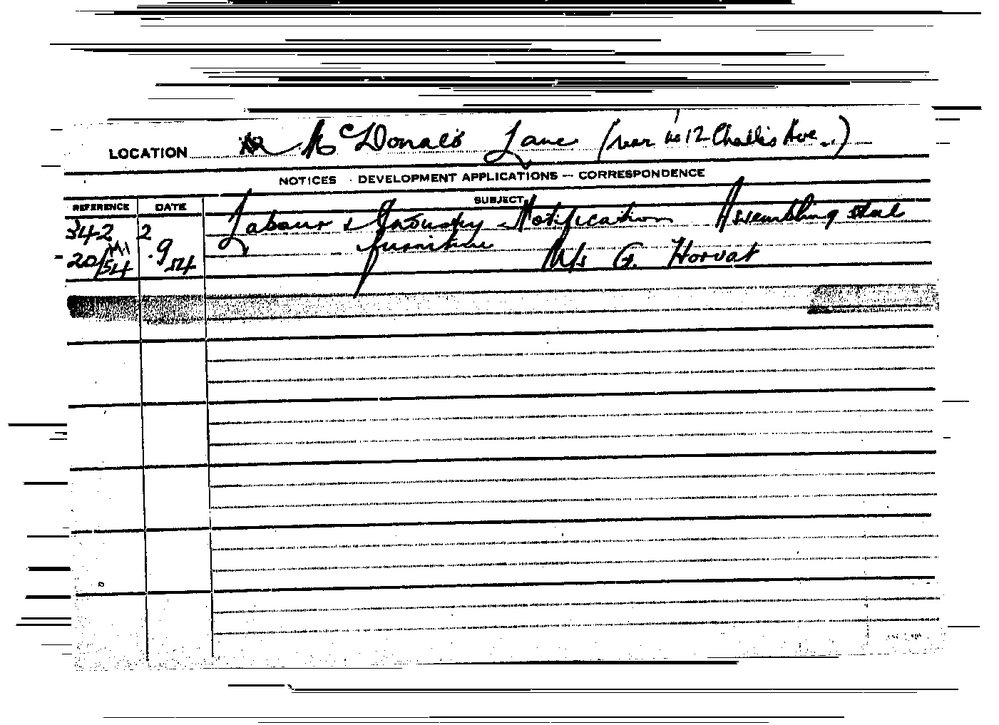 LOCATION McDonald's Lane (rear No 12 Challis Ave.)
NOTICES - DEVELOPMENT APPLICATIONS — CORRESPONDENCE
REFERENCE DATE SUBJECT
342 2 Labour & Industry Notification Assembling steel
20/54 .9.54 furniture M/s G. Horvat